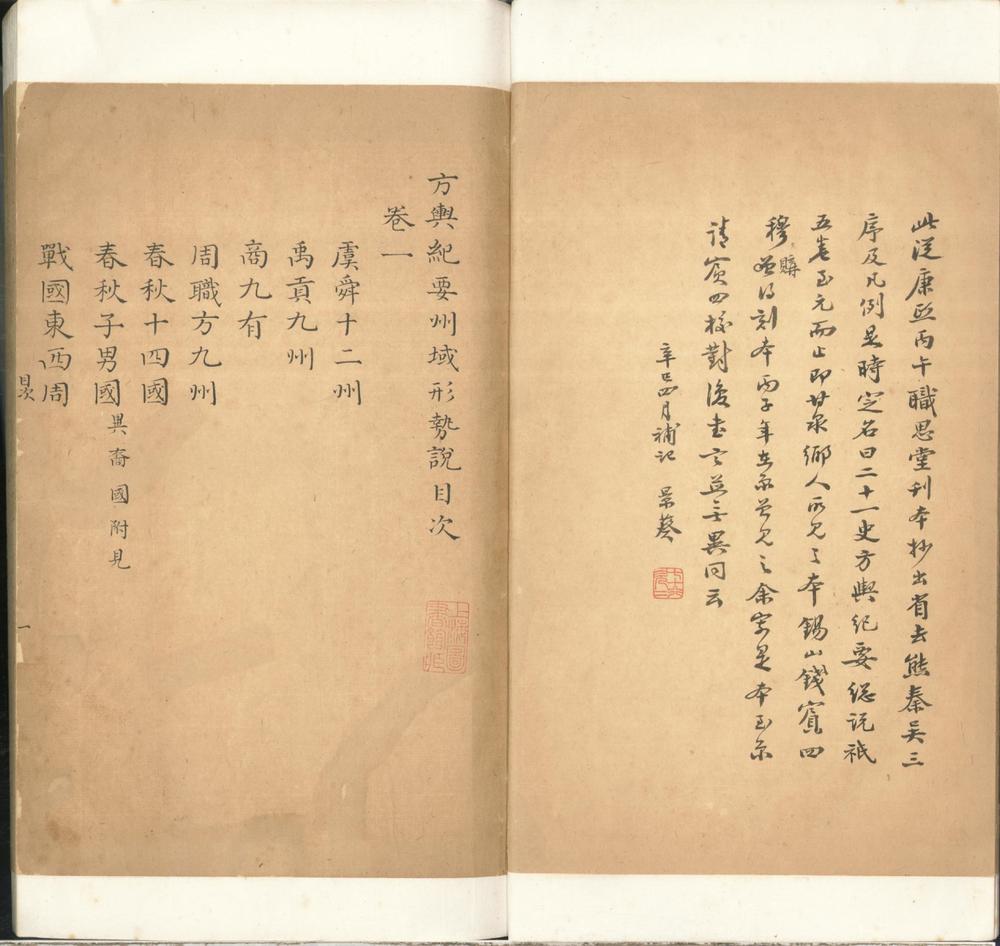 此從康熙丙午職思堂刊本抄出省去熊秦吳三
序及凡例是時定名曰二十一史方輿紀要總說祇
五卷至元而止即甘泉鄉人所見之本錫山錢賓四
穆購得刻本丙子年在京曾見之余寄是本至京
請賓四校對後書言並無異同云
辛巳四月補記 景葵
方輿紀要州域形勢說目次
卷一
虞舜十二州
禹貢九州
商九有
周職方九州
春秋十四國
春秋子男國 異裔國附見
戰國東西周
目次
一
上海圖書館藏